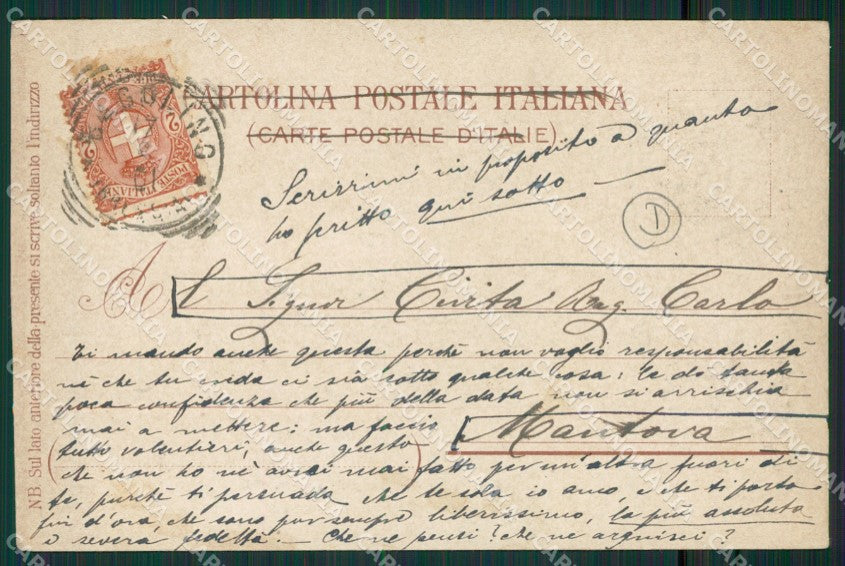 CARTOLINA POSTALE ITALIANA
(CARTE POSTALE D'ITALIE)
Scrivimi in proposito a quanto
ho scritto qui sotto —
D
NB. Sul lato anteriore della presente si scrive soltanto l'indirizzo
POSTE ITALIANE
A
Signor Civita Rag. Carlo
Ti mando anche questa perchè non voglio responsabilità
nè che tu creda ci sia sotto qualche cosa: le do tanta
poca confidenza che più della data non si arrischia
mai a mettere: ma faccio
Mantova
tutto volentieri, anche questo
che non ho nè avrei mai fatto per un'altra fuori di
te, purchè ti persuada che te sola io amo, e che ti porto
fin d'ora, che sono pur sempre liberissimo, la più assoluta
e severa fedeltà. — Che ne pensi? che ne arguisci?
CARTOLINOMANIA